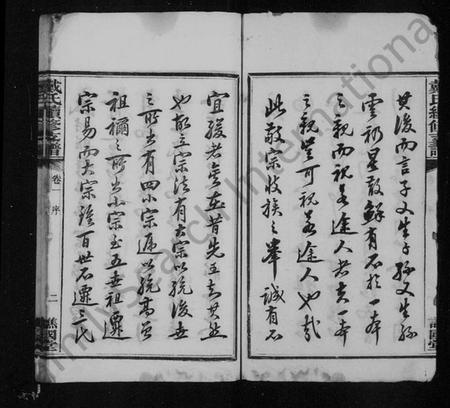 其後而言子又生子孫又生孫
雲礽星散鮮有不於一本
之親而視若途人者夫一本
之親豈可視若途人也哉
此敬宗收族之舉誠有不
宜緩者矣昔先王知其然
也故立宗法有大宗以統後世
之所出有四小宗遞以統高曾
祖禰之所出小宗至五世祖遷
宗易而大宗雖百世不遷三代
戴氏續修支譜
卷一 序
二
譙國堂
FamilySearch International